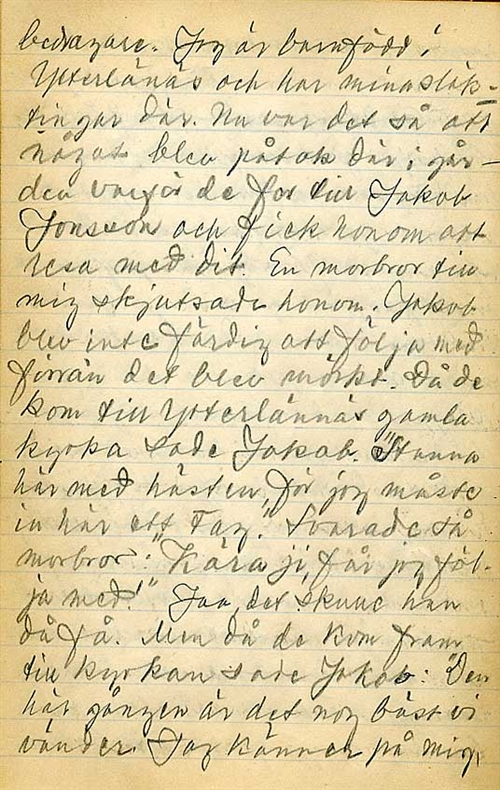 bedragare. Jag är barnfödd i
Ytterlänäs och har mina släk-
tingar där. Nu var det så att
något blev påtok där i går-
den varför de for till Jakob
Jonsson och fick honom att
resa med dit. En morbror till
mig skjutsade honom. Jakob
blev inte färdig att följa med
förrän det blev mörkt. Då de
kom till Ytterlännäs gamla
kyrka sade Jakob. "Stanna
här med hästen, för jag måste
in här ett tag." Svarade så
morbror: "Kära ji, får jag föl-
ja med!" Jaa, det skulle han
då få. Men då de kom fram
till kyrkan sade Jakob: "Den
här gången är det nog bäst vi
vänder. Jag känner på mig,